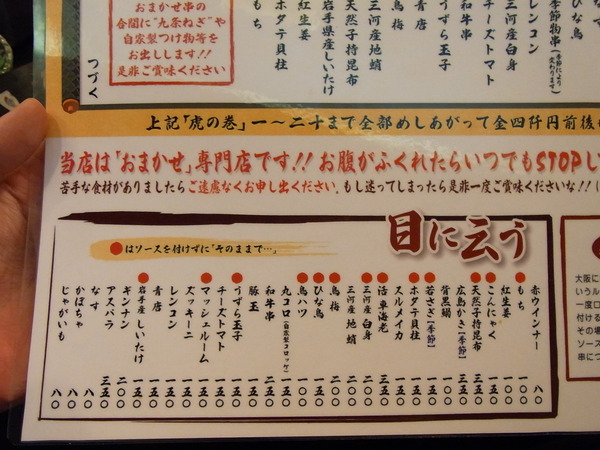 おまかせ串の
合間に"九条ねぎ"や
自家製つけ物等を
お出しします!!
是非ご賞味ください
つづく
ひな鳥
季節物串
三河産白身
レンコン
チーズトマト
和牛串
うずら玉子
青唐
鳥梅
三河産地蛸
天然子持昆布
岩手県産しいたけ
紅生姜
ホタテ貝柱
もち
上記「虎の巻」一〜二十まで全部めしあがって金四仟円前後
当店は「おまかせ」専門店です!!お腹がふくれたらいつでもSTOPし
苦手な食材がありましたらご遠慮なくお申し出ください。もし迷ってしまったら是非一度ご賞味くださいな!!
目に云う
●はソースを付けずに「そのままで…」
赤ウインナー 八〇
もち
紅生姜
こんにゃく
天然子持昆布
広島かき【季節】
背黒鰯
若さぎ【季節】
ホタテ貝柱
スルメイカ
活車海老
三河産白身
三河産地蛸
鳥梅
ひな鳥
鳥ハツ
丸コロ(自家製コロッケ)
和牛串
豚玉
うずら玉子
チーズトマト
マッシュルーム
ズッキーニ
レンコン
青唐
岩手産しいたけ
ギンナン
アスパラ
なす
かぼちゃ 八〇
じゃがいも 八〇
大阪に
いうル
一度口
付ける
その場
ソース
串につ